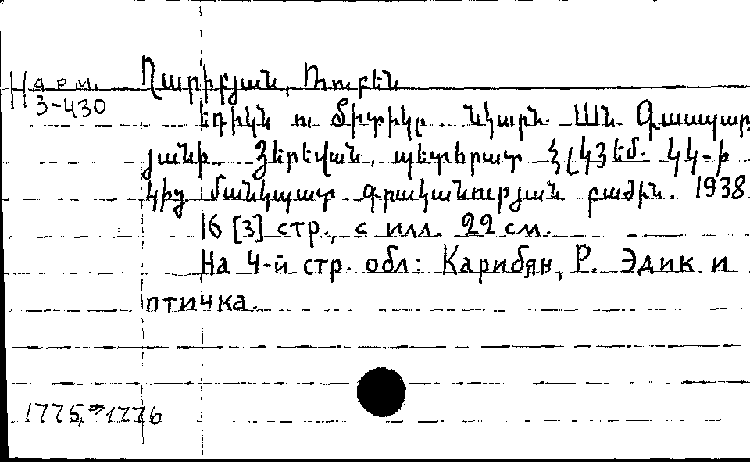 Н арм. Ղարիբյան, Ռուբեն
3-430
Եդիկն ու Ծիտիկը. Նկարն. Ան. Գասպար
յանի. Յերեվան, պետհրատ
կից մանկապատ. գրականության բաժին. 1938
16 [3] стр., с илл. 22 см.
На 4-й стр. обл: Карибян, Р. Эдик и
птичка.
1775, 1776